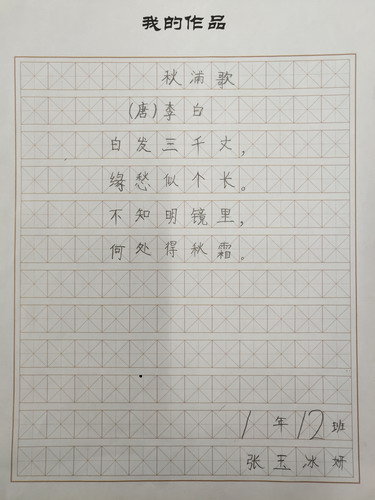 我的作品
秋浦歌
(唐)李白
白发三千丈,
缘愁似个长。
不知明镜里,
何处得秋霜。
1年12班
张玉冰妍